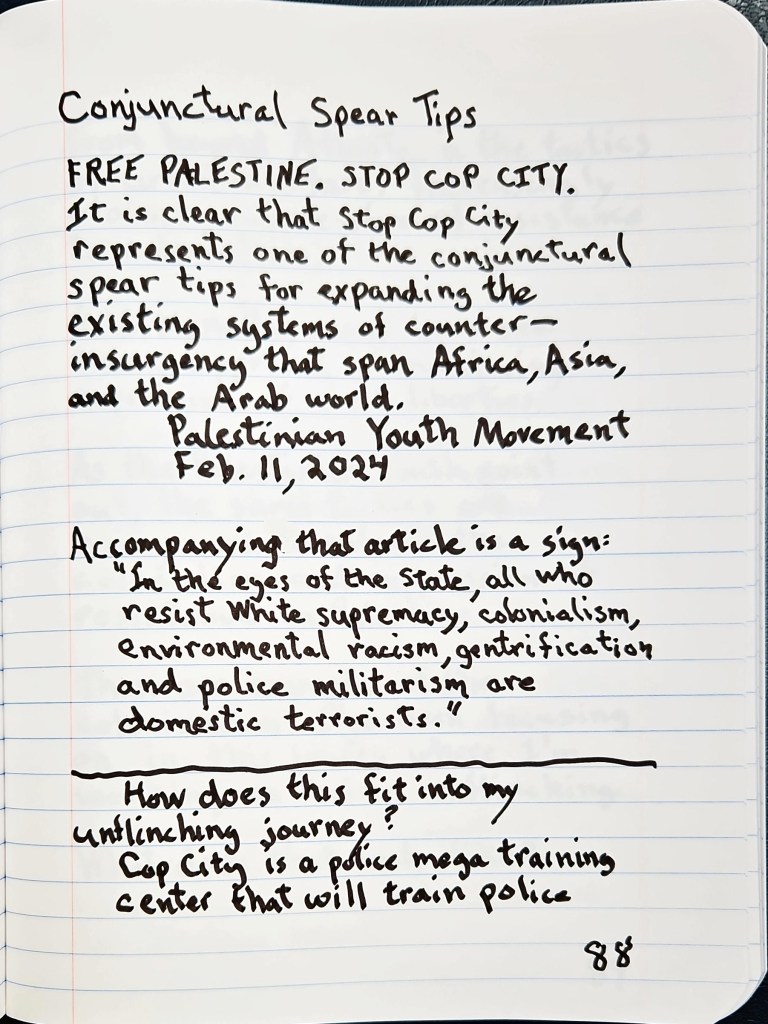 Conjunctural Spear Tips
FREE PALESTINE. STOP COP CITY.
It is clear that Stop Cop City
represents one of the conjunctural
spear tips for expanding the
existing systems of counter-
insurgency that span Africa, Asia,
and the Arab world.
Palestinian Youth Movement
Feb. 11, 2024
Accompanying that article is a sign:
"In the eyes of the State, all who
resist White supremacy, colonialism,
environmental racism, gentrification
and police militarism are
domestic terrorists."
How does this fit into my
unflinching journey?
Cop City is a police mega training
center that will train police
88